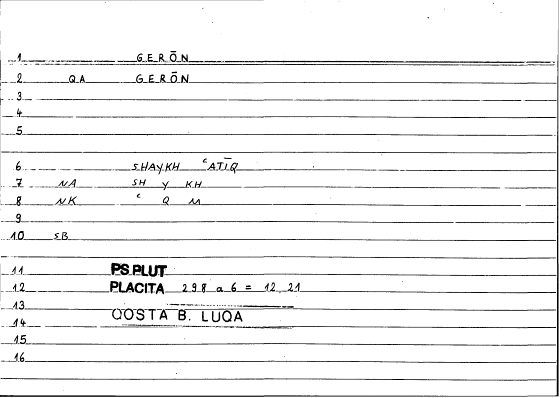 1 GERŌN
2 QA GERŌN
3
4
5
6 SHAYKH ʿATĪQ
7 NA SH Y KH
8 NK ʿ Q M
9
10 SB
11 PS.PLUT
12 PLACITA 298 a 6 = 12, 21
13
14 QOSTA B. LUQA
15
16